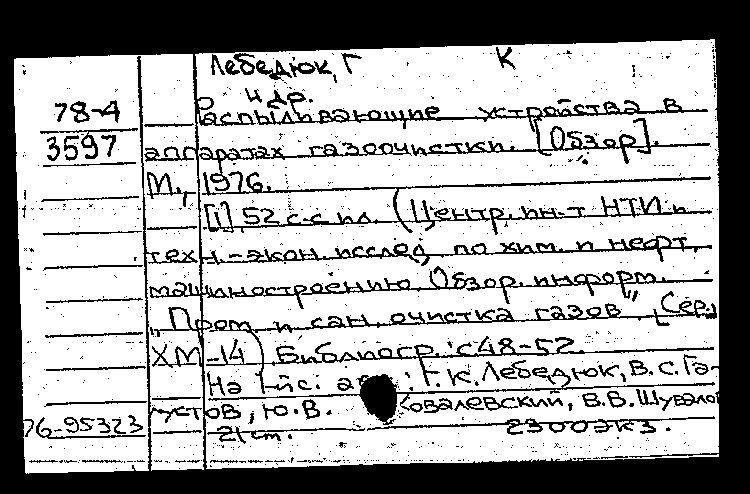 Лебедюк, Г К
и др.
78-4 Распыливающие устройства в
3597 аппаратах газоочистки. [Обзор].
М., 1976.
[1], 52 с. с ил. (Центр. ин-т НТИ и
техн.-экон. исслед. по хим. и нефт.
машиностроению. Обзор. информ.
"Пром. и сан. очистка газов", Сер.
ХМ-14). Библиогр.: с 48-52
На 1-й с.: : Г.К. Лебедюк, В.С. Га-
густов, Ю.В. Ковалевский, В.В. Шувалов
76-95323 21 см. 2300 экз.